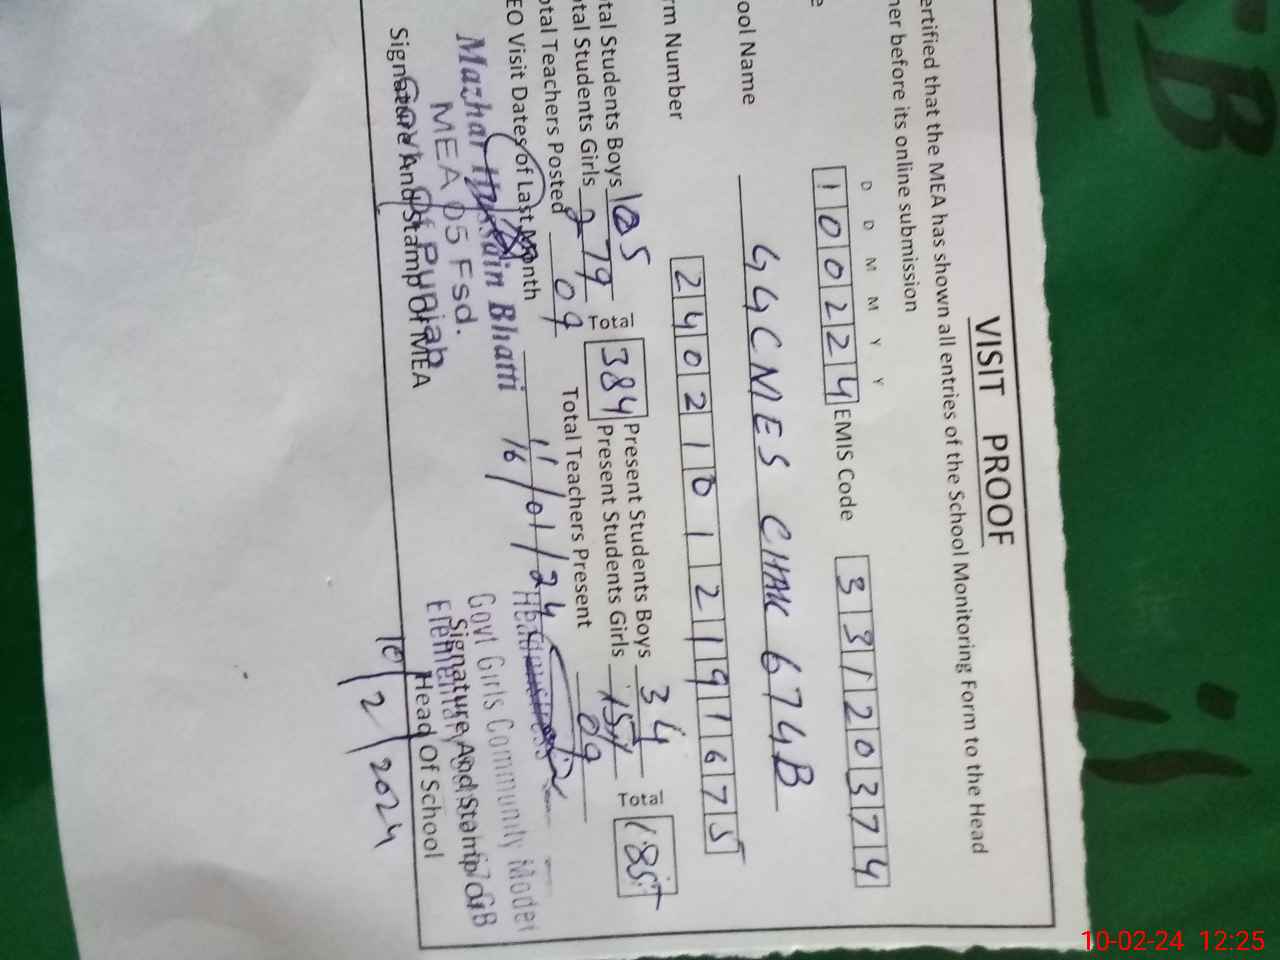 VISIT PROOF
ertified that the MEA has shown all entries of the School Monitoring Form to the Head
her before its online submission
D D M M Y Y
e 100224 EMIS Code 33120374
ool Name GGCMES CHAK 674B
rm Number 2402101219 1675
tal Students Boys 105 Present Students Boys 34
tal Students Girls 279 Total 384 Present Students Girls 151 Total 185
otal Teachers Posted 09 Total Teachers Present 09
EO Visit Dates of Last Month 16/01/24
Mazhar Hussain Bhatti
MEA 05 Fsd.
Govt Of Punjab
Signature And Stamp Of MEA
Headmistress
Govt Girls Community Model
Elementary
Signature And Stamp Of
Head Of School
10/2/2024
10-02-24 12:25